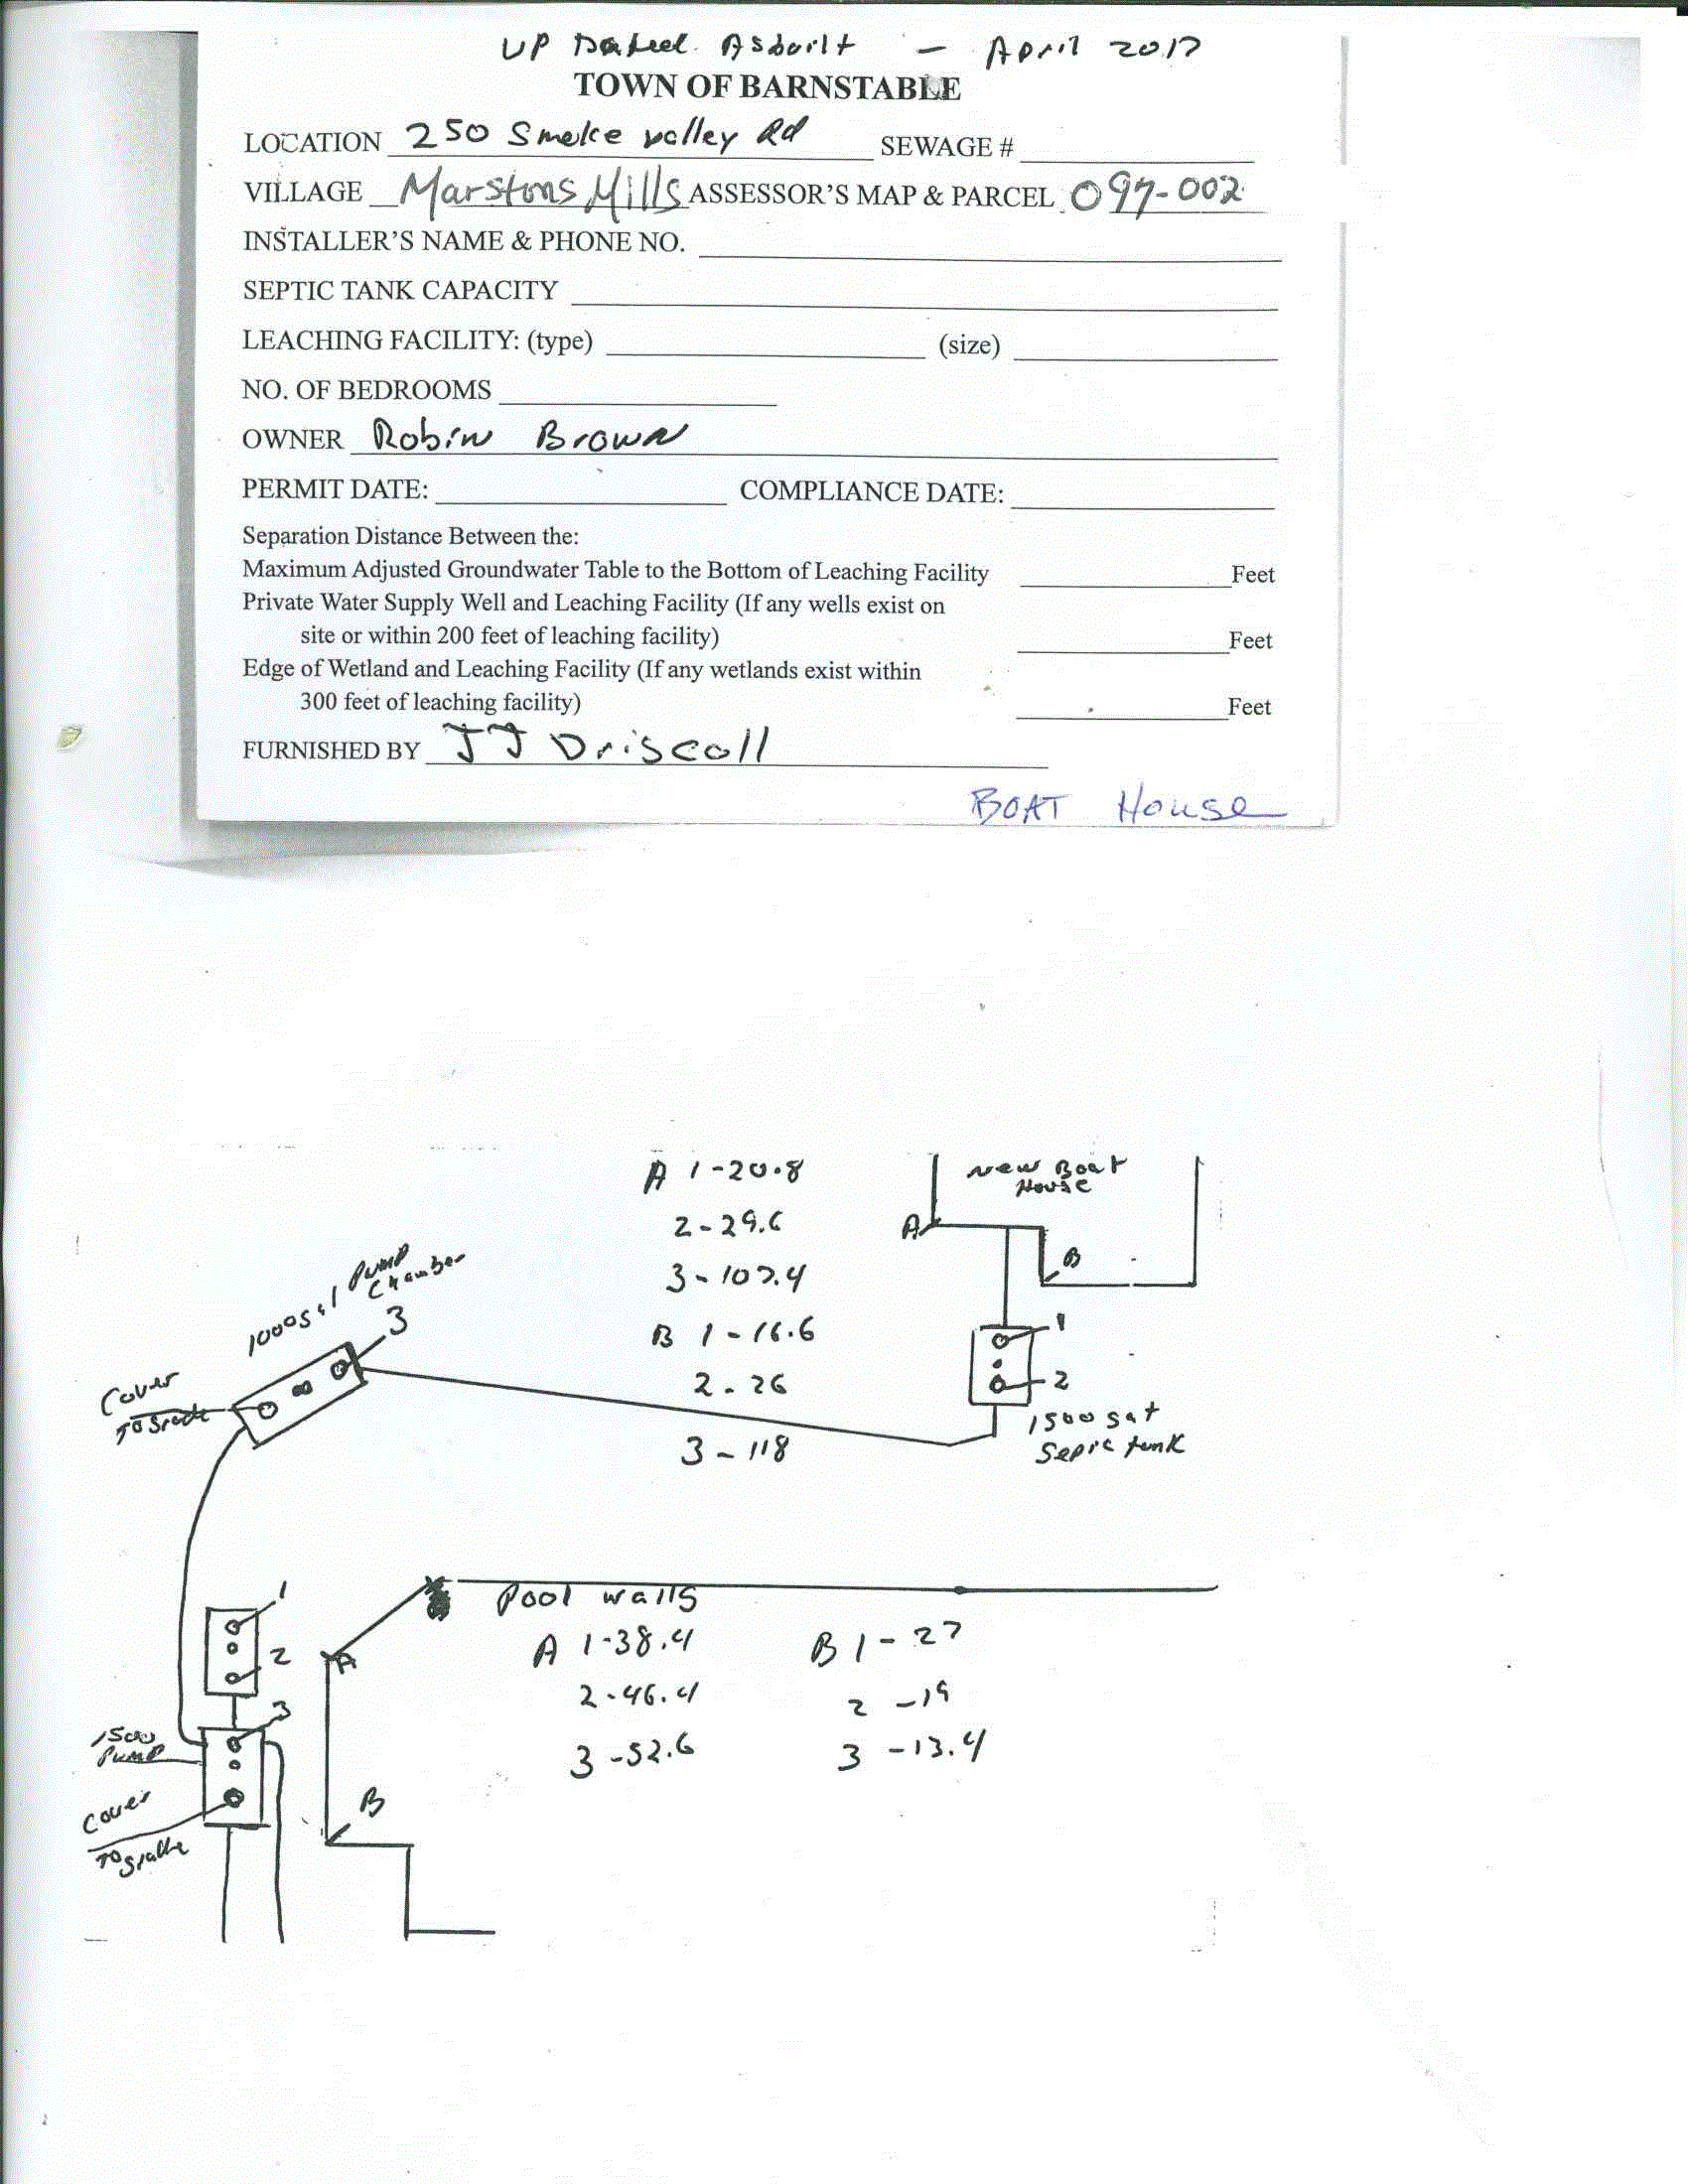 UP Dated Asbuilt - April 2017
TOWN OF BARNSTABLE
LOCATION 250 Smoke Valley Rd SEWAGE #
VILLAGE Marstons Mills ASSESSOR'S MAP & PARCEL 097-002
INSTALLER'S NAME & PHONE NO.
SEPTIC TANK CAPACITY
LEACHING FACILITY: (type) (size)
NO. OF BEDROOMS
OWNER Robin Brown
PERMIT DATE: COMPLIANCE DATE:
Separation Distance Between the:
Maximum Adjusted Groundwater Table to the Bottom of Leaching Facility Feet
Private Water Supply Well and Leaching Facility (If any wells exist on
site or within 200 feet of leaching facility) Feet
Edge of Wetland and Leaching Facility (If any wetlands exist within
300 feet of leaching facility) Feet
FURNISHED BY JJ Driscoll
BOAT House
A 1-20.8
2-29.6
3-107.4
B 1-16.6
2-26
3-118
New Boat
House
A
B
1
2
1500 gal
Septic tank
1000 gal Pump
Chamber
3
Cover
To Grade
1
2
3
1500
Pump
Cover
To Grade
A
B
Pool walls
A 1-38.4
2-46.4
3-52.6
B 1-27
2-19
3-13.4